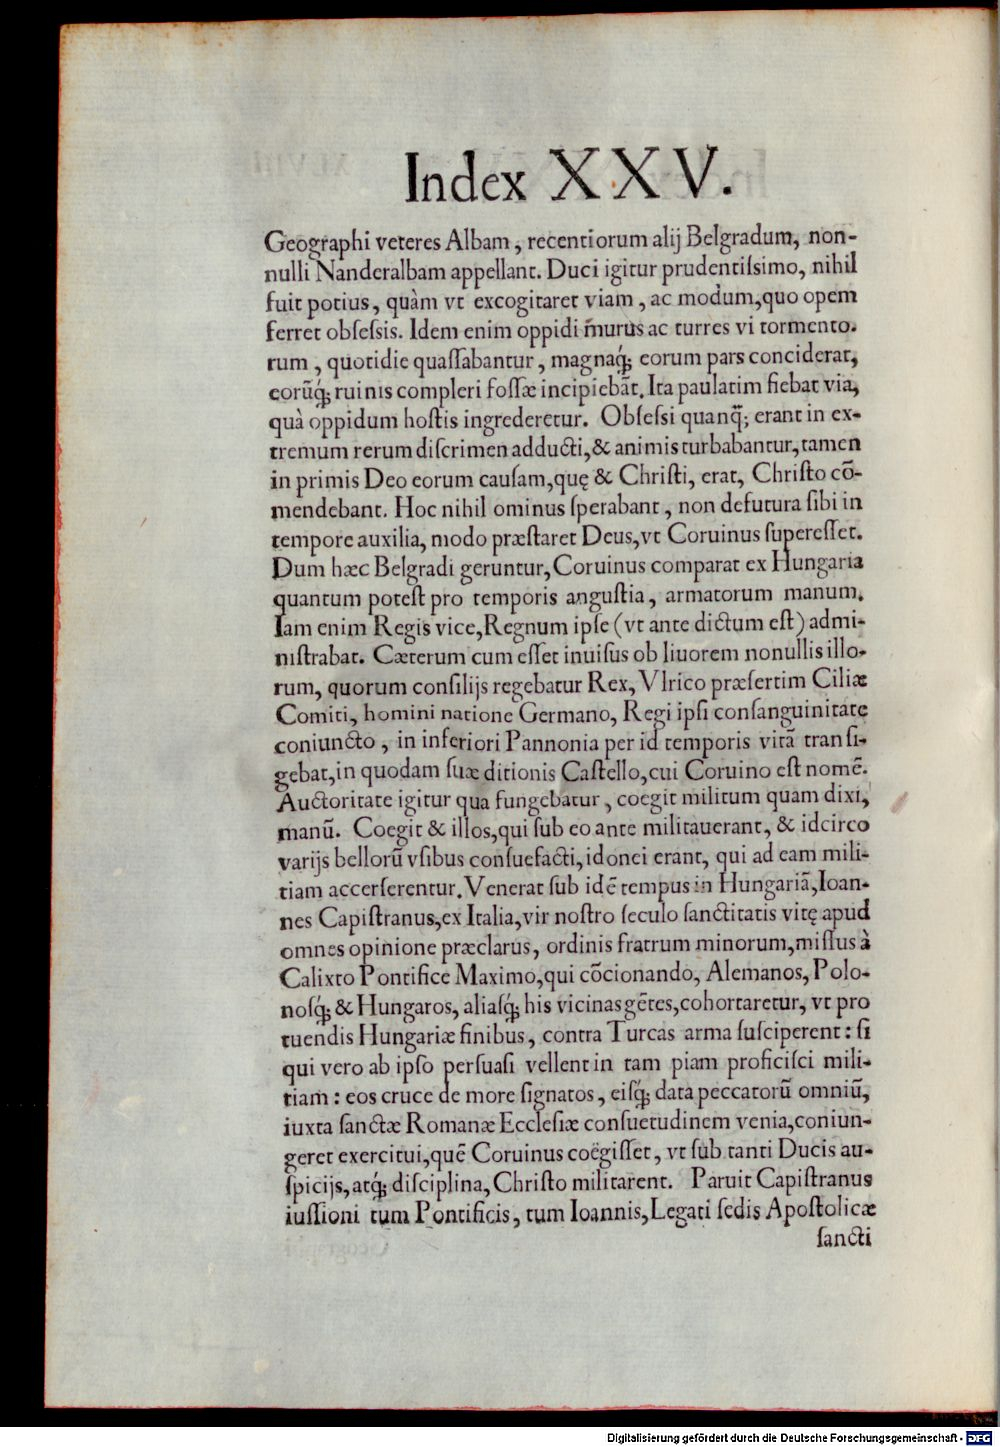 Index XXV.
Geographi veteres Albam, recentiorum alij Belgradum, non-
nulli Nanderalbam appellant. Duci igitur prudentiſsimo, nihil
fuit potius, quàm vt excogitaret viam, ac modum, quo opem
ferret obſeſsis. Idem enim oppidi murus ac turres vi tormento-
rum, quotidie quaſſabantur, magnaq́; eorum pars conciderat,
eorūq́; ruinis compleri foſſæ incipiebāt. Ita paulatim fiebat via,
quà oppidum hoſtis ingrederetur. Obſeſsi quanq̃; erant in ex-
tremum rerum diſcrimen adducti, & animis turbabantur, tamen
in primis Deo eorum cauſam, quę & Chriſti, erat, Chriſto cō-
mendebant. Hoc nihil ominus ſperabant, non defutura ſibi in
tempore auxilia, modo præſtaret Deus, vt Coruinus ſupereſſet.
Dum hæc Belgradi geruntur, Coruinus comparat ex Hungaria
quantum poteſt pro temporis anguſtia, armatorum manum.
Iam enim Regis vice, Regnum ipſe (vt ante dictum eſt) admi-
niſtrabat. Cæterum cum eſſet inuiſus ob liuorem nonullis illo-
rum, quorum conſilijs regebatur Rex, Vlrico præſertim Ciliæ
Comiti, homini natione Germano, Regi ipſi conſanguinitate
coniuncto, in inferiori Pannonia per id temporis vitā tranſi-
gebat, in quodam ſuæ ditionis Caſtello, cui Coruino eſt nomē.
Auctoritate igitur qua fungebatur, coegit militum quam dixi,
manū. Coegit & illos, qui ſub eo ante militauerant, & idcirco
varijs bellorū vſibus conſuefacti, idonei erant, qui ad eam mili-
tiam accerſerentur. Venerat ſub idē tempus in Hungariā, Ioan-
nes Capiſtranus, ex Italia, vir noſtro ſeculo ſanctitatis vitę apud
omnes opinione præclarus, ordinis fratrum minorum, miſſus à
Calixto Pontifice Maximo, qui cōcionando, Alemanos, Polo-
noſq́; & Hungaros, aliaſq́; his vicinas gētes, cohortaretur, vt pro
tuendis Hungariæ finibus, contra Turcas arma ſuſciperent: ſi
qui vero ab ipſo perſuaſi vellent in tam piam proficiſci mili-
tiam: eos cruce de more ſignatos, eiſq́; data peccatorū omniū,
iuxta ſanctæ Romanæ Eccleſiæ conſuetudinem venia, coniun-
geret exercitui, quē Coruinus coëgiſſet, vt ſub tanti Ducis au-
ſpicijs, atq́; diſciplina, Chriſto militarent. Paruit Capiſtranus
iuſſioni tum Pontificis, tum Ioannis, Legati ſedis Apoſtolicæ
ſancti
Digitalisierung gefördert durch die Deutsche Forschungsgemeinschaft - DFG